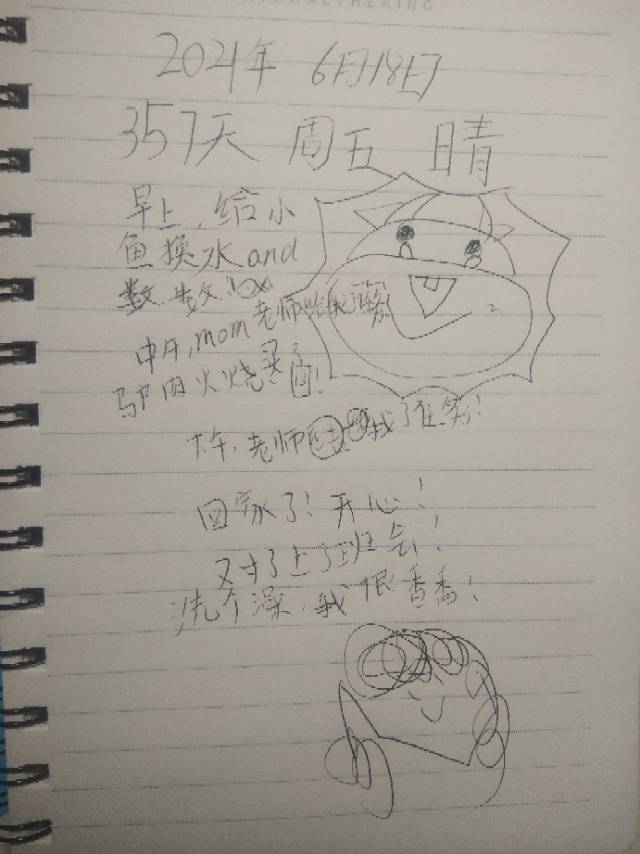 2021年 6月18日
357天 周五 晴
早上，给小
鱼换水and
数数
中午，mom 老师给我
驴肉火烧 买了
下午，老师 我了
回家了！开心！
又对了上了班会！
洗个澡，我很香香！